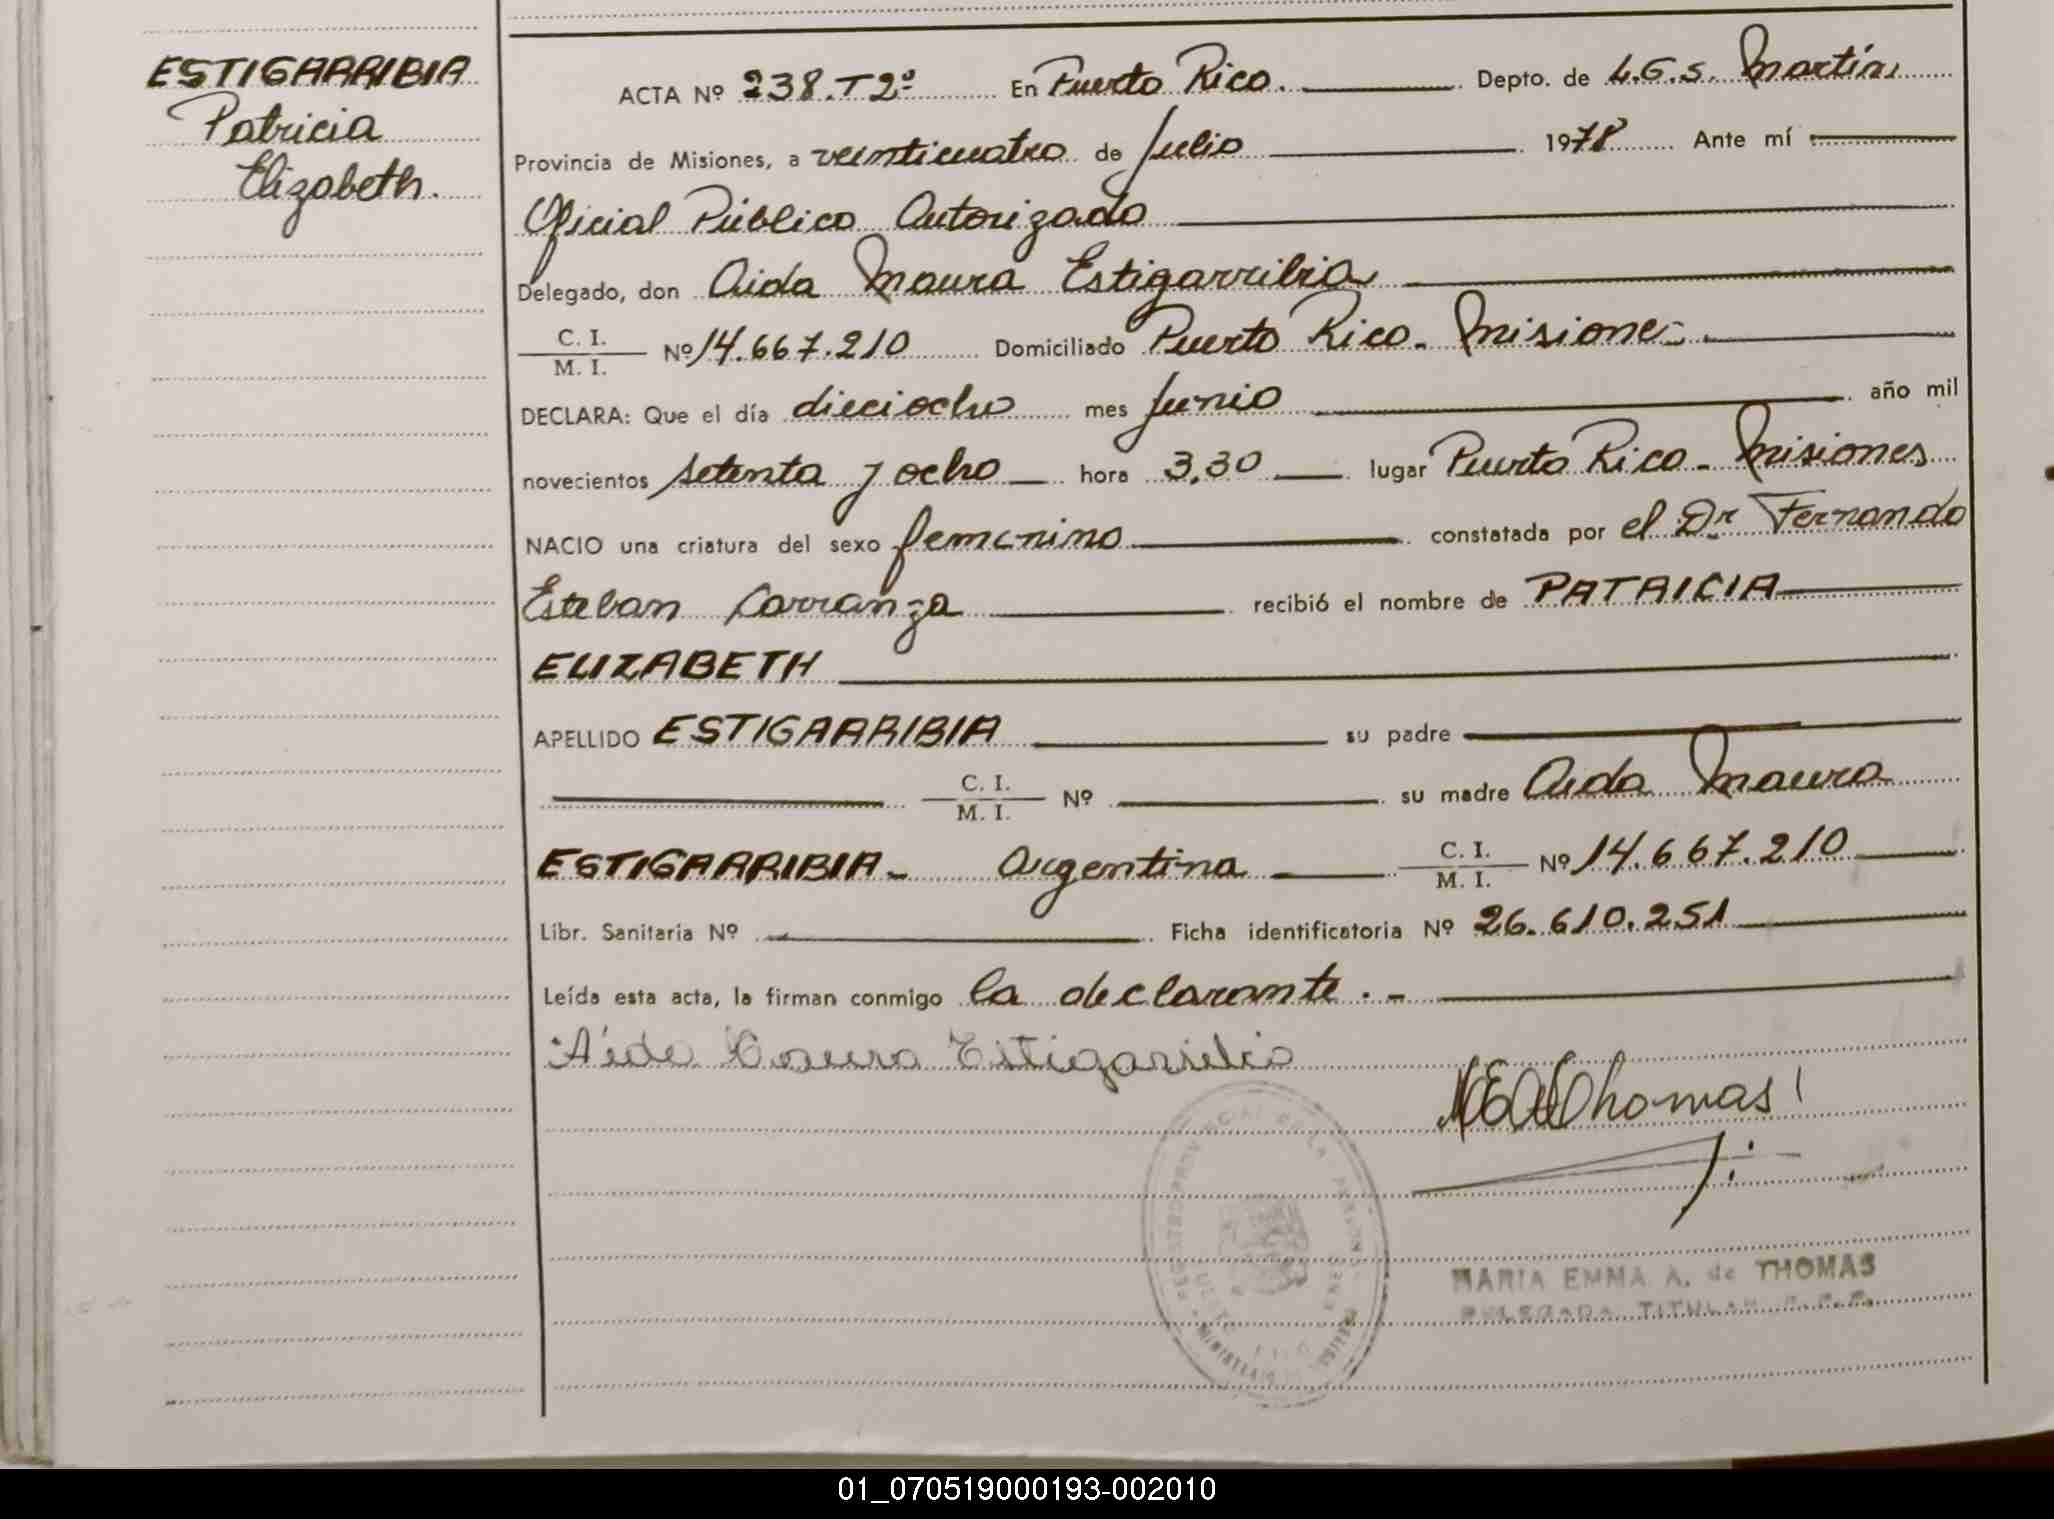 ESTIGARRIBIA
Patricia
Elizabeth.
ACTA Nº 238.T2º En Puerto Rico. Depto. de L.G.S. Martín
Provincia de Misiones, a veinticuatro de Julio 1978 Ante mí
Oficial Público Autorizado
Delegado, don Aida Maura Estigarribia
C. I.
M. I. Nº 14.667.210 Domiciliado Puerto Rico - Misiones
DECLARA: Que el día dieciocho mes Junio año mil
novecientos setenta y ocho hora 3,30 lugar Puerto Rico - Misiones
NACIO una criatura del sexo femenino constatada por el Dr Fernando
Esteban Carranza recibió el nombre de PATRICIA
ELIZABETH
APELLIDO ESTIGARRIBIA su padre
C. I.
M. I. Nº su madre Aida Maura
ESTIGARRIBIA - Argentina C. I.
M. I. Nº 14.667.210
Libr. Sanitaria Nº Ficha identificatoria Nº 26.610.251
Leída esta acta, la firman conmigo la declarante . -
Aída Maura Estigarribia
MEAdeThomas
MARIA EMMA A. de THOMAS
DELEGADA TITULAR R.P.P.
01_070519000193-002010